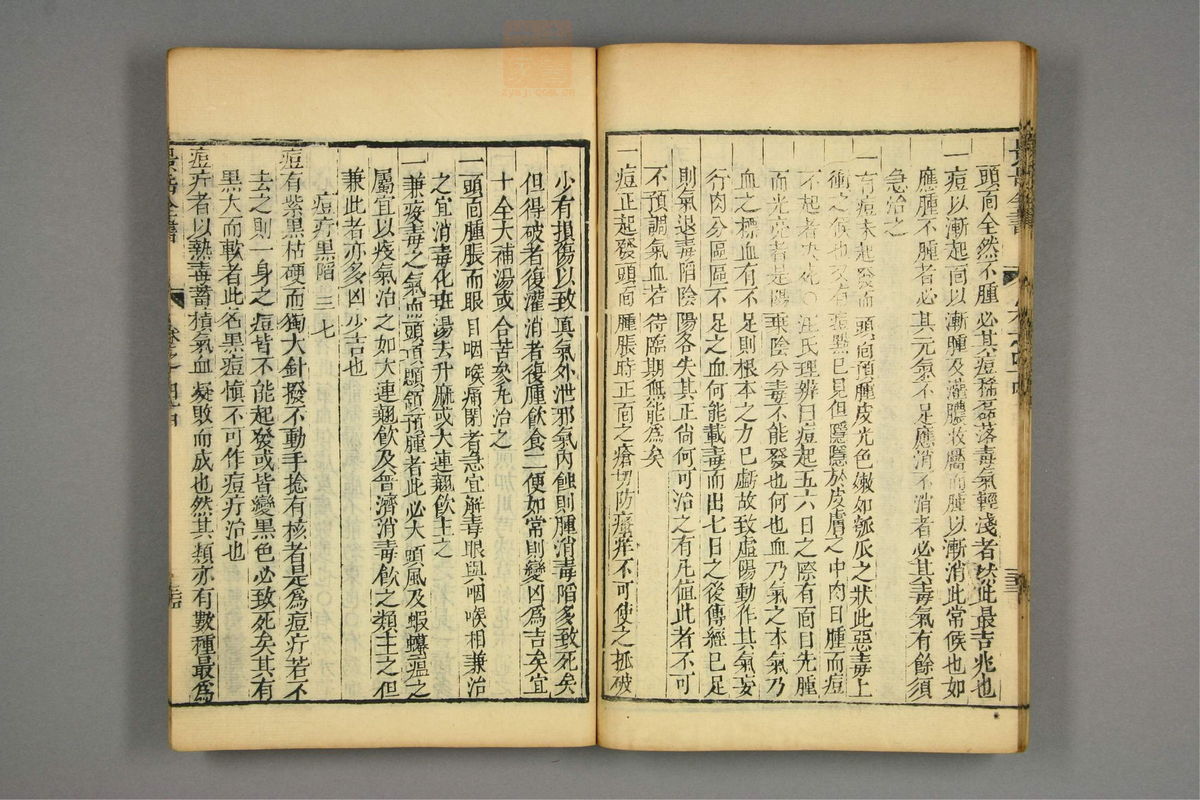 頭面全然不腫必其痘稀磊落毒氣輕淺者然此最吉兆也
一痘以漸起面以漸腫及灌膿收靨而腫以漸消此常候也如
應腫不腫者必其元氣不足應消不消者必其毒氣有餘須
急治之
一有痘未起發而頭面預腫皮光色嫩如瓠瓜之狀此惡毒上
衝之候也又有痘點已見但隱隱於皮膚之中肉日腫而痘
不起者決死〇汪氏理辨曰痘起五六日之際有面目先腫
而光亮者是陽乘陰分毒不能發也何也血乃氣之本氣乃
血之標血有不足則根本之力已虧故致虛陽動作其氣妄
行肉分區區不足之血何能載毒而出七日之後傳經已足
則氣退毒陷陰陽各失其正尚何可治之有凡值此者不可
不預調氣血若待臨期無能為矣
一痘正起發頭面腫脹時正面之瘡切防瘙痒不可使之抓破
少有損傷以致真氣外泄邪氣內蝕則腫消毒陷多致死矣
但得破者復灌消者復腫飲食二便如常則變凶為吉矣宜
十全大補湯或合苦參丸治之
一頭面腫脹而眼目咽喉痛閉者急宜解毒眼與咽喉相兼治
之宜消毒化斑湯去升麻或大連翹飲主之
一兼疫毒之氣而頭項頤頷預腫者此必大頭風及蝦蟆瘟之
屬宜以疫氣治之如大連翹飲及普濟消毒飲之類主之但
兼此者亦多凶少吉也
痘疔黑陷 三七
痘有紫黑枯硬而獨大針撥不動手捻有核者是為痘疔若不
去之則一身之痘皆不能起發或皆變黑色必致死矣其有
黑大而軟者此名黑痘慎不可作痘疔治也
痘疔者以熱毒蓄積氣血凝敗而成也然其類亦有數種最為
景岳全書
卷之四十四